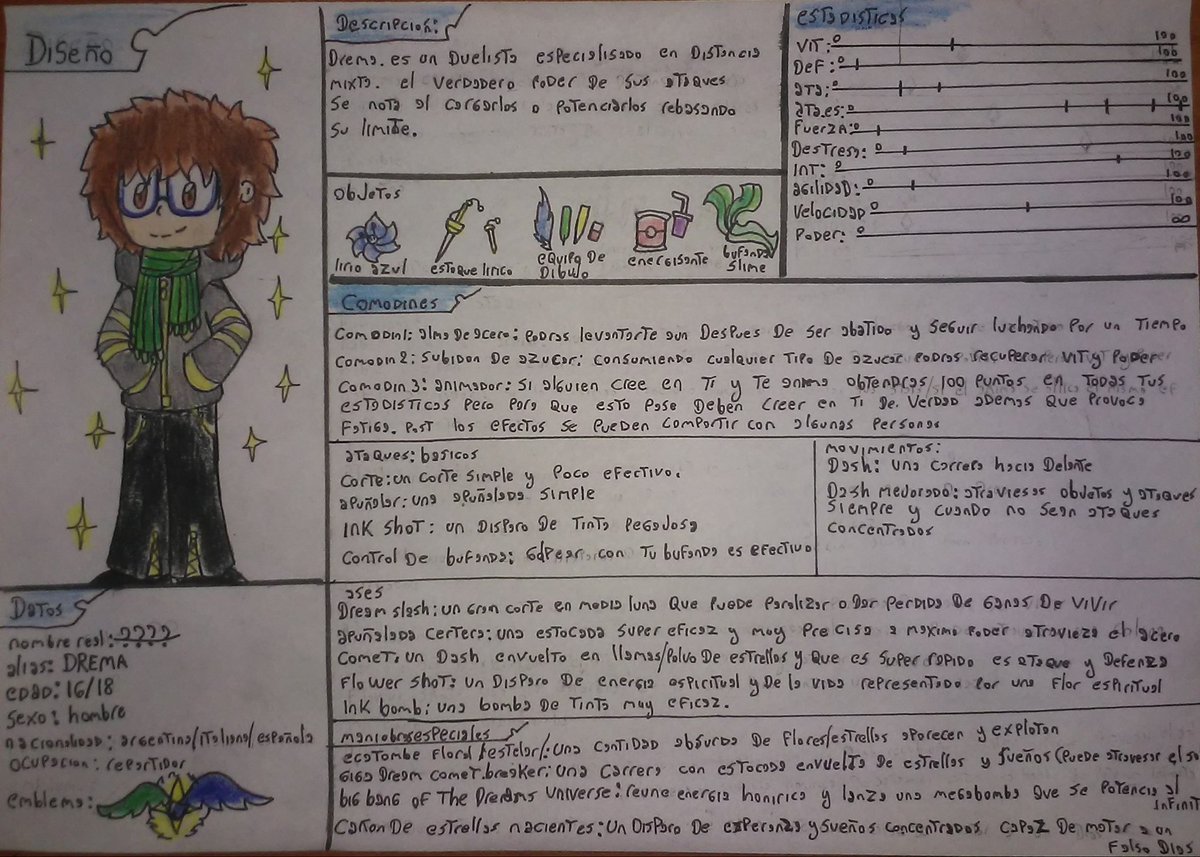 Diseño
Descripcion:
Drema. es un Duelista especialisado en Distancia
mixta. el verdadero poder de sus ataques
se nota al cargarlos o potenciarlos rebasando
su limite.
Objetos
lirio azul
estoque lirico
equipo de
Dibujo
energisante
bufanda
slime
estadisticas
VIT: 0 100
Def: 0 100
ata: 0 100
ata.es: 0 100
Fuerza: 0 100
Destresa: 0 100
INT: 0 100
agilidad: 0 100
Velocidad 0 100
Poder: 0 00
Comodines
Comodin1: alma de acero: podras levantarte aun Despues De ser abatido y seguir luchando por un tiempo
Comodin 2: subidon De azucar: consumiendo cualquier tipo De azucar podras recuperar VIT y poder
Comodin 3: animador: si alguien cree en ti y te anima obtendras/100 puntos en todas tus
estadisticas pero para que esto pase Deben creer en ti de verdad ademas que provoca
fatiga. Post los efectos se pueden compartir con algunas personas
ataques: basicos
Corte: un corte simple y poco efectivo.
apuñalar: una apuñalada simple
INK SHOT: un Disparo De Tinta pegajosa
Control De bufanda: Golpear con tu bufanda es efectivo
movimientos:
Dash: una carrera hacia Delante
Dash mejorado: atraviesas objetos y ataques
siempre y cuando no sean ataques
concentrados
ases
Dream slash: un gran corte en media luna que puede paralizar o Dar perdida De Ganas De vivir
apuñalada certera: una estocada super eficaz y muy precisa a maximo poder atravieza el acero
Comet: un Dash envuelto en llamas/polvo De estrellas y que es super rapido es ataque y Defenza
Flower shot: un Disparo De energia espiritual y De la vida representado por una flor espiritual
Ink bomb: una bomba De tinta muy eficaz.
maniobras especiales
ecatombe floral/estelar/: una cantidad absurda De Flores/estrellas aparecen y explotan
Giga Dream comet.breaker: una carrera con estocada envuelta De estrellas y sueños (Puede atravesar el so
big bang of The Dreams universe: reune energia honirica y lanza una megabomba que se potencia al
infinit
Cañon De estrellas nacientes: un Disparo De esperanza y sueños concentrados capaz De matar a un
Falso Dios
Datos
nombre real: ????
alias: DREMA
edad: 16/18
Sexo: hombre
nacionalidad: argentina/italiana/española
ocupacion: repartidor
emblema: